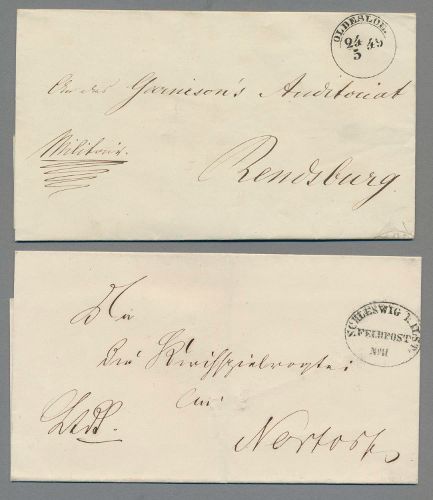 OLDESLOE
24 49
5
An das Garnison's Auditoriat
Militair.
Rendsburg.
SCHLESWIG HOLST.
FELDPOST
An
die Kirchspielvogtei
in
Nortorf